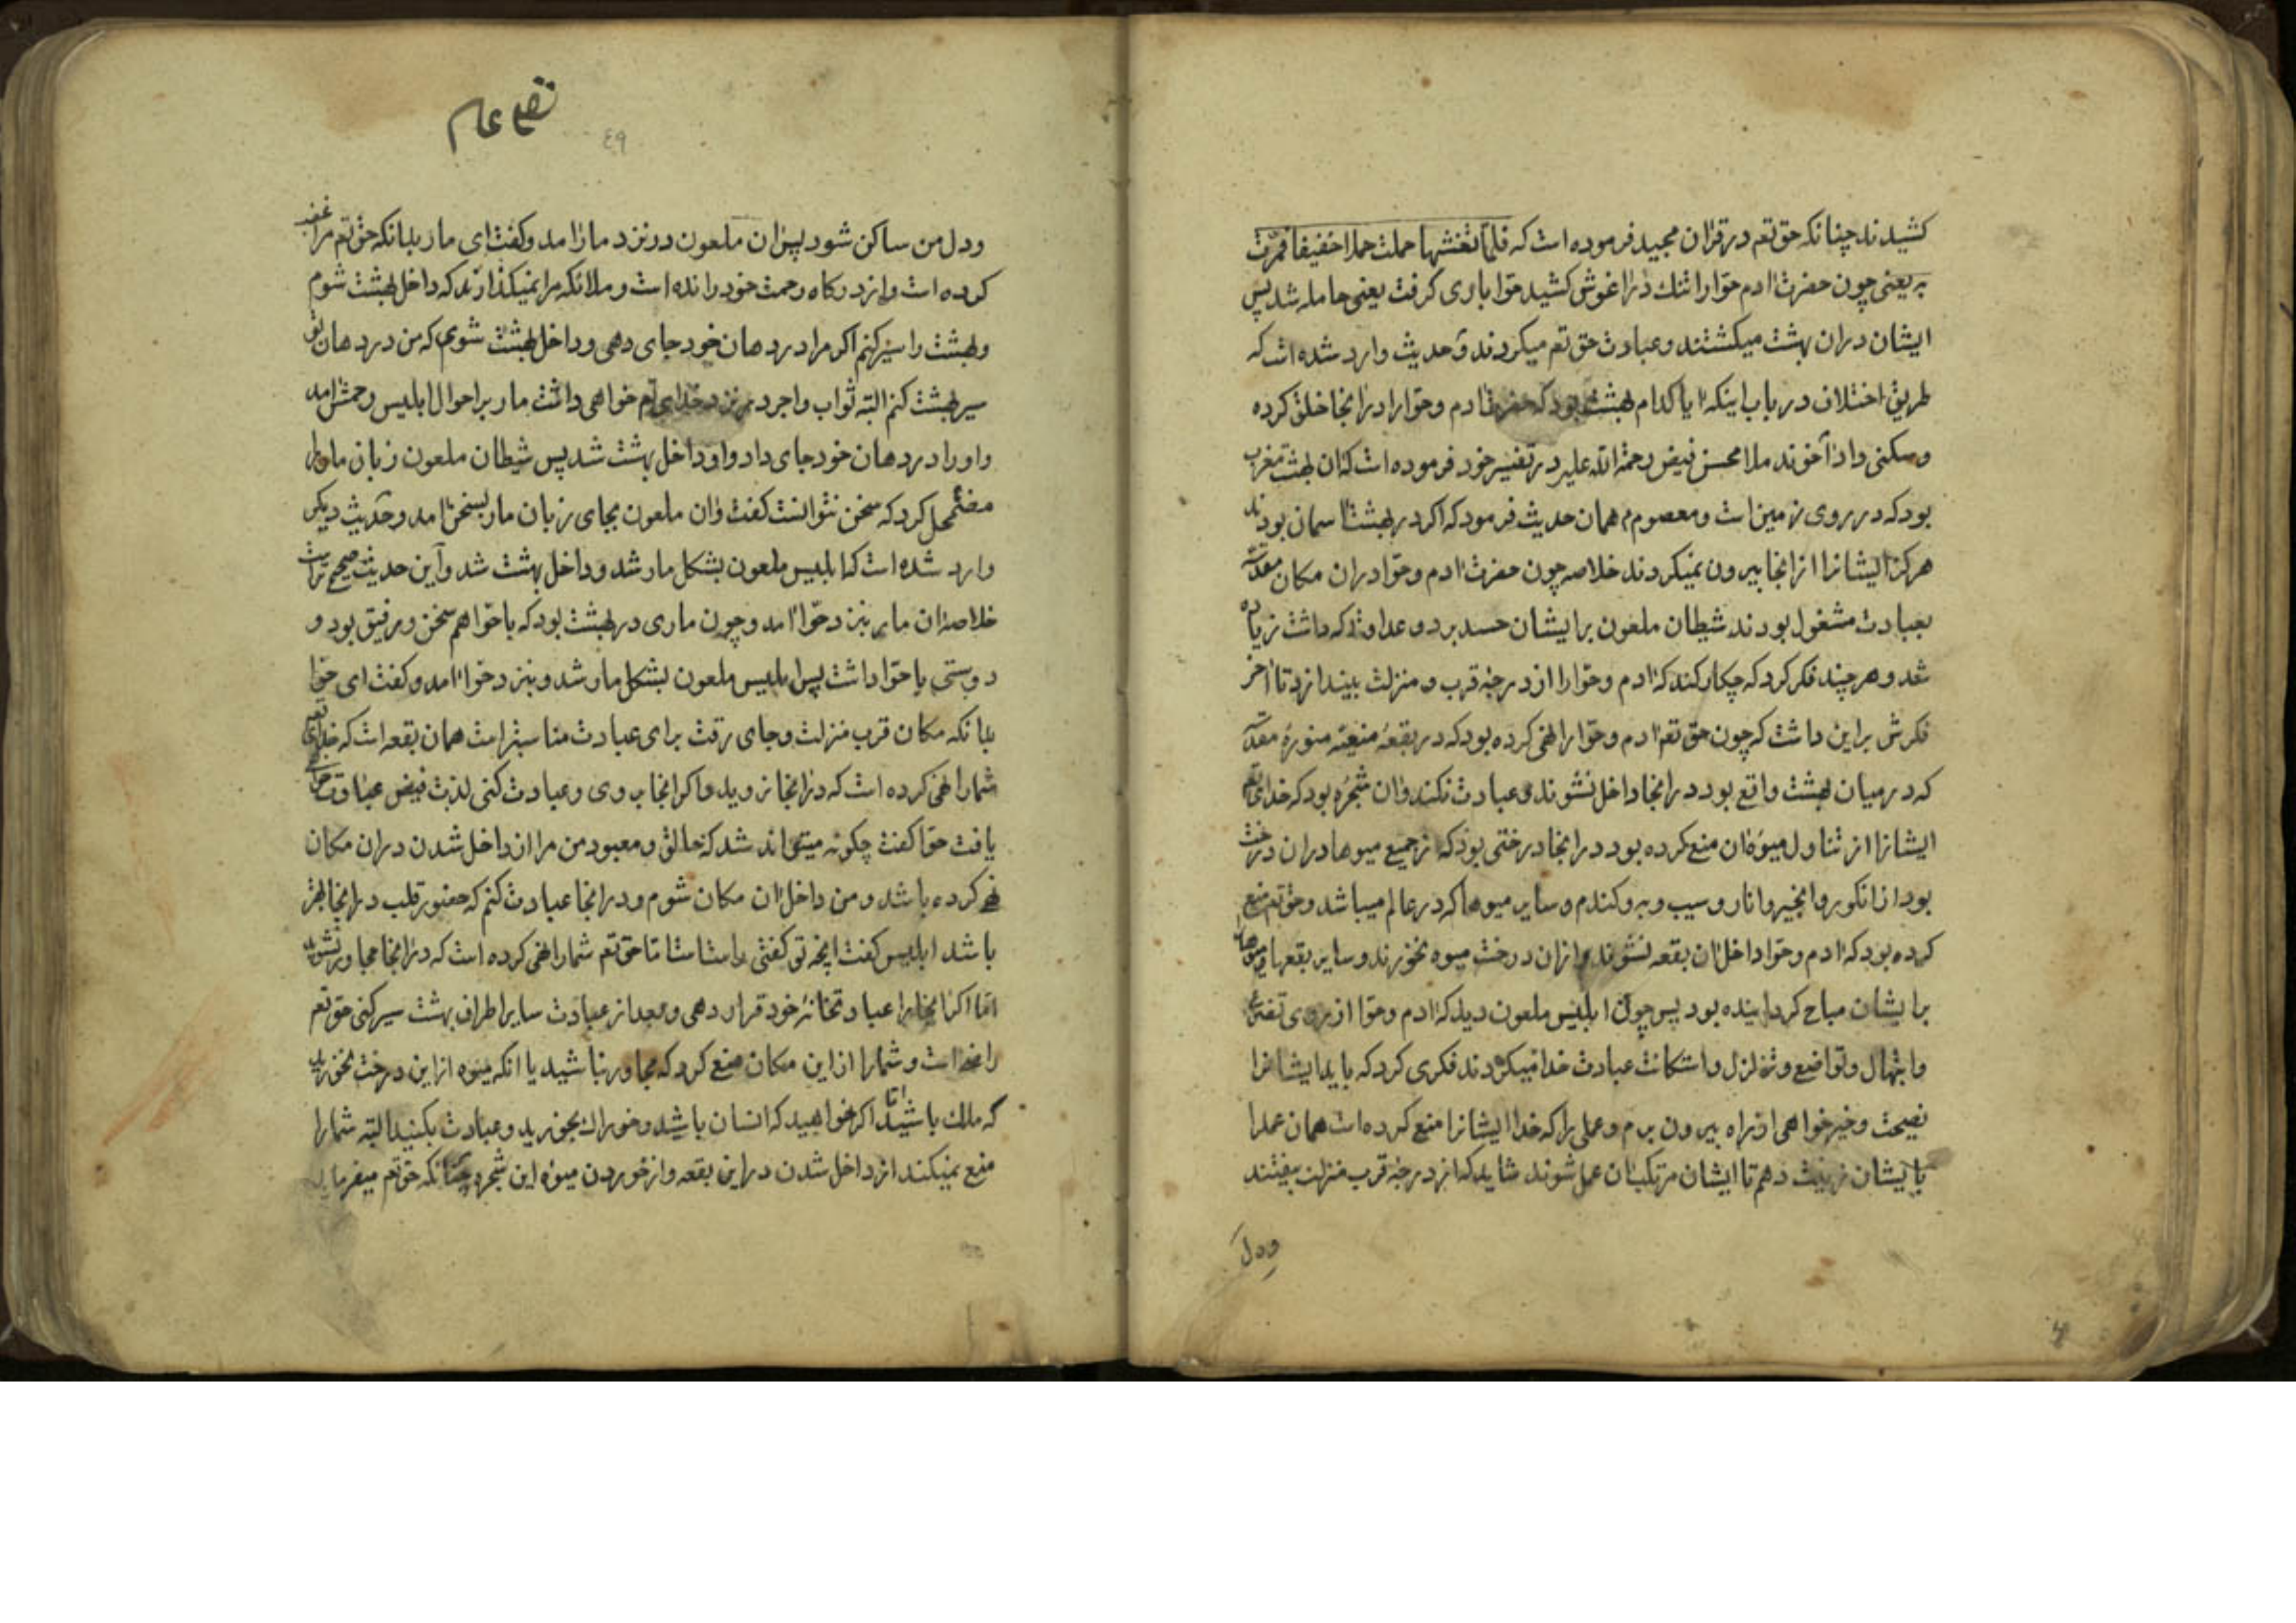 کشیدند چنانکه حق تعم در قران مجید فرموده است که فلما تغشیها حملت حملا خفیفا فمرت
به یعنی چون حضرت ادم حوا را تنك در اغوش کشید حوا باری کرفت یعنی حامله شد پس
ایشان دران بهشت میکشتند و عبادت حق تعم میکردند و حدیث وارد شده است که
طریق اختلاف در باب اینکه ایا کدام بهشت بود که حضرت ادم و حوا را در انجا خلق کرده
و سکنی داد آخوند ملا محسن فیض رحمة الله علیه در تفسیر خود فرموده است که ان بهشت مغرب
بود که در روی زمین است و معصوم م همان حدیث فرمود که اکر در بهشت اسمان بودند
هرکز ایشانرا از انجا بیرون نمیکردند خلاصه چون حضرت ادم و حوا دران مکان مقدس
بعبادت مشغول بودند شیطان ملعون بر ایشان حسد برد و عداوت که داشت زیاده
شد و هر چند فکر کرد که چکار کند که ادم و حوا را از درجهٔ قرب و منزلت بیندازد تا اخر
فکرش براین داشت که چون حق تعم ادم و حوا را نهی کرده بود که در بقعهٔ منیعهٔ منورهٔ مقدسه
که در میان بهشت واقع بود در انجا داخل نشوند و عبادت نکنند و ان شجره بود که خدای تعم
ایشانرا از تناول میوهٔ ان منع کرده بود در انجا درختی بود که از جمیع میوها دران درخت
بود از انکور و انجیر و انار و سیب و به و کندم و سایر میوها که در عالم میباشد و حق تعم منع
کرده بود که ادم و حوا داخل ان بقعه نشوند و ازان درخت میوه نخورند و سایر بقعها و میوها
بر ایشان مباح کردانیده بود پس چون ابلیس ملعون دید که ادم و حوا از روی تضرع
و ابتهال و تواضع و تزلزل و استکانت عبادت خدا میکردند فکری کرد که باید ایشانرا
نصیحت و خیرخواهی از راه بیرون برم و عملی را که خدا ایشانرا منع کرده است همان عمل را
بایشان زینت دهم تا ایشان مرتکب ان عمل شوند شاید که از درجهٔ قرب منزلت بیفتند
ودل
٤٩
ودل من ساکن شود پس ان ملعون در نزد مار امد و کفت ای مار بدانکه حق تعم مرا غضب
کرده است و از درکاه رحمت خود رانده است و ملائکه مرا نمیکذارند که داخل بهشت شوم
و بهشت را سیر کنم اکر مرا در دهان خود جای دهی و داخل بهشت شوی که من در دهان تو
سیر بهشت کنم البته ثواب و اجر در نزد خدای تم خواهی داشت مار بر احوال ابلیس رحمش امد
و او را در دهان خود جای داد و او داخل بهشت شد پس شیطان ملعون زبان مار را
مضمحل کرد که سخن نتوانست کفت و ان ملعون بجای زبان مار بسخن امد و حدیث دیکر
وارد شده است که ابلیس ملعون بشکل مار شد و داخل بهشت شد و این حدیث صحیح تر است
خلاصه ان مار بنزد حوا امد و چون ماری در بهشت بود که با حوا هم سخن و رفیق بود و
دوستی با حوا داشت پس ابلیس ملعون بشکل مار شد و بنزد حوا امد و کفت ای حوا
بدانکه مکان قرب منزلت و جای رقت برای عبادت مناسبتر است همان بقعه است که خدای تعم
شما را نهی کرده است که در انجا نروید و اکر انجا بروی و عبادت کنی لذت فیض عبادت خواهی
یافت حوا کفت چکونه میتواند شد که خالق و معبود من مرا از داخل شدن دران مکان
نهی کرده باشد و من داخل ان مکان شوم و در انجا عبادت کنم که حضور قلب در انجا بهتر
باشد ابلیس کفت انچه تو کفتی حق تعم شما را نهی کرده است که در انجا مجاور نشوید
اما اکر انجا را عبادتخانهٔ خود قرار دهی و بعد از عبادت سایر اطراف بهشت سیر کنی حق تعم
راضی است و شما را از این مکان منع کرد که مجاور نباشید یا انکه میوه از این درخت نخورید
که ملك باشید اما اکر خواهید که انسان باشید و خوراك بخورید و عبادت بکنید البته شما را
منع نمیکند از داخل شدن دراین بقعه و از خوردن میوه این شجره چنانکه حق تعم میفرماید